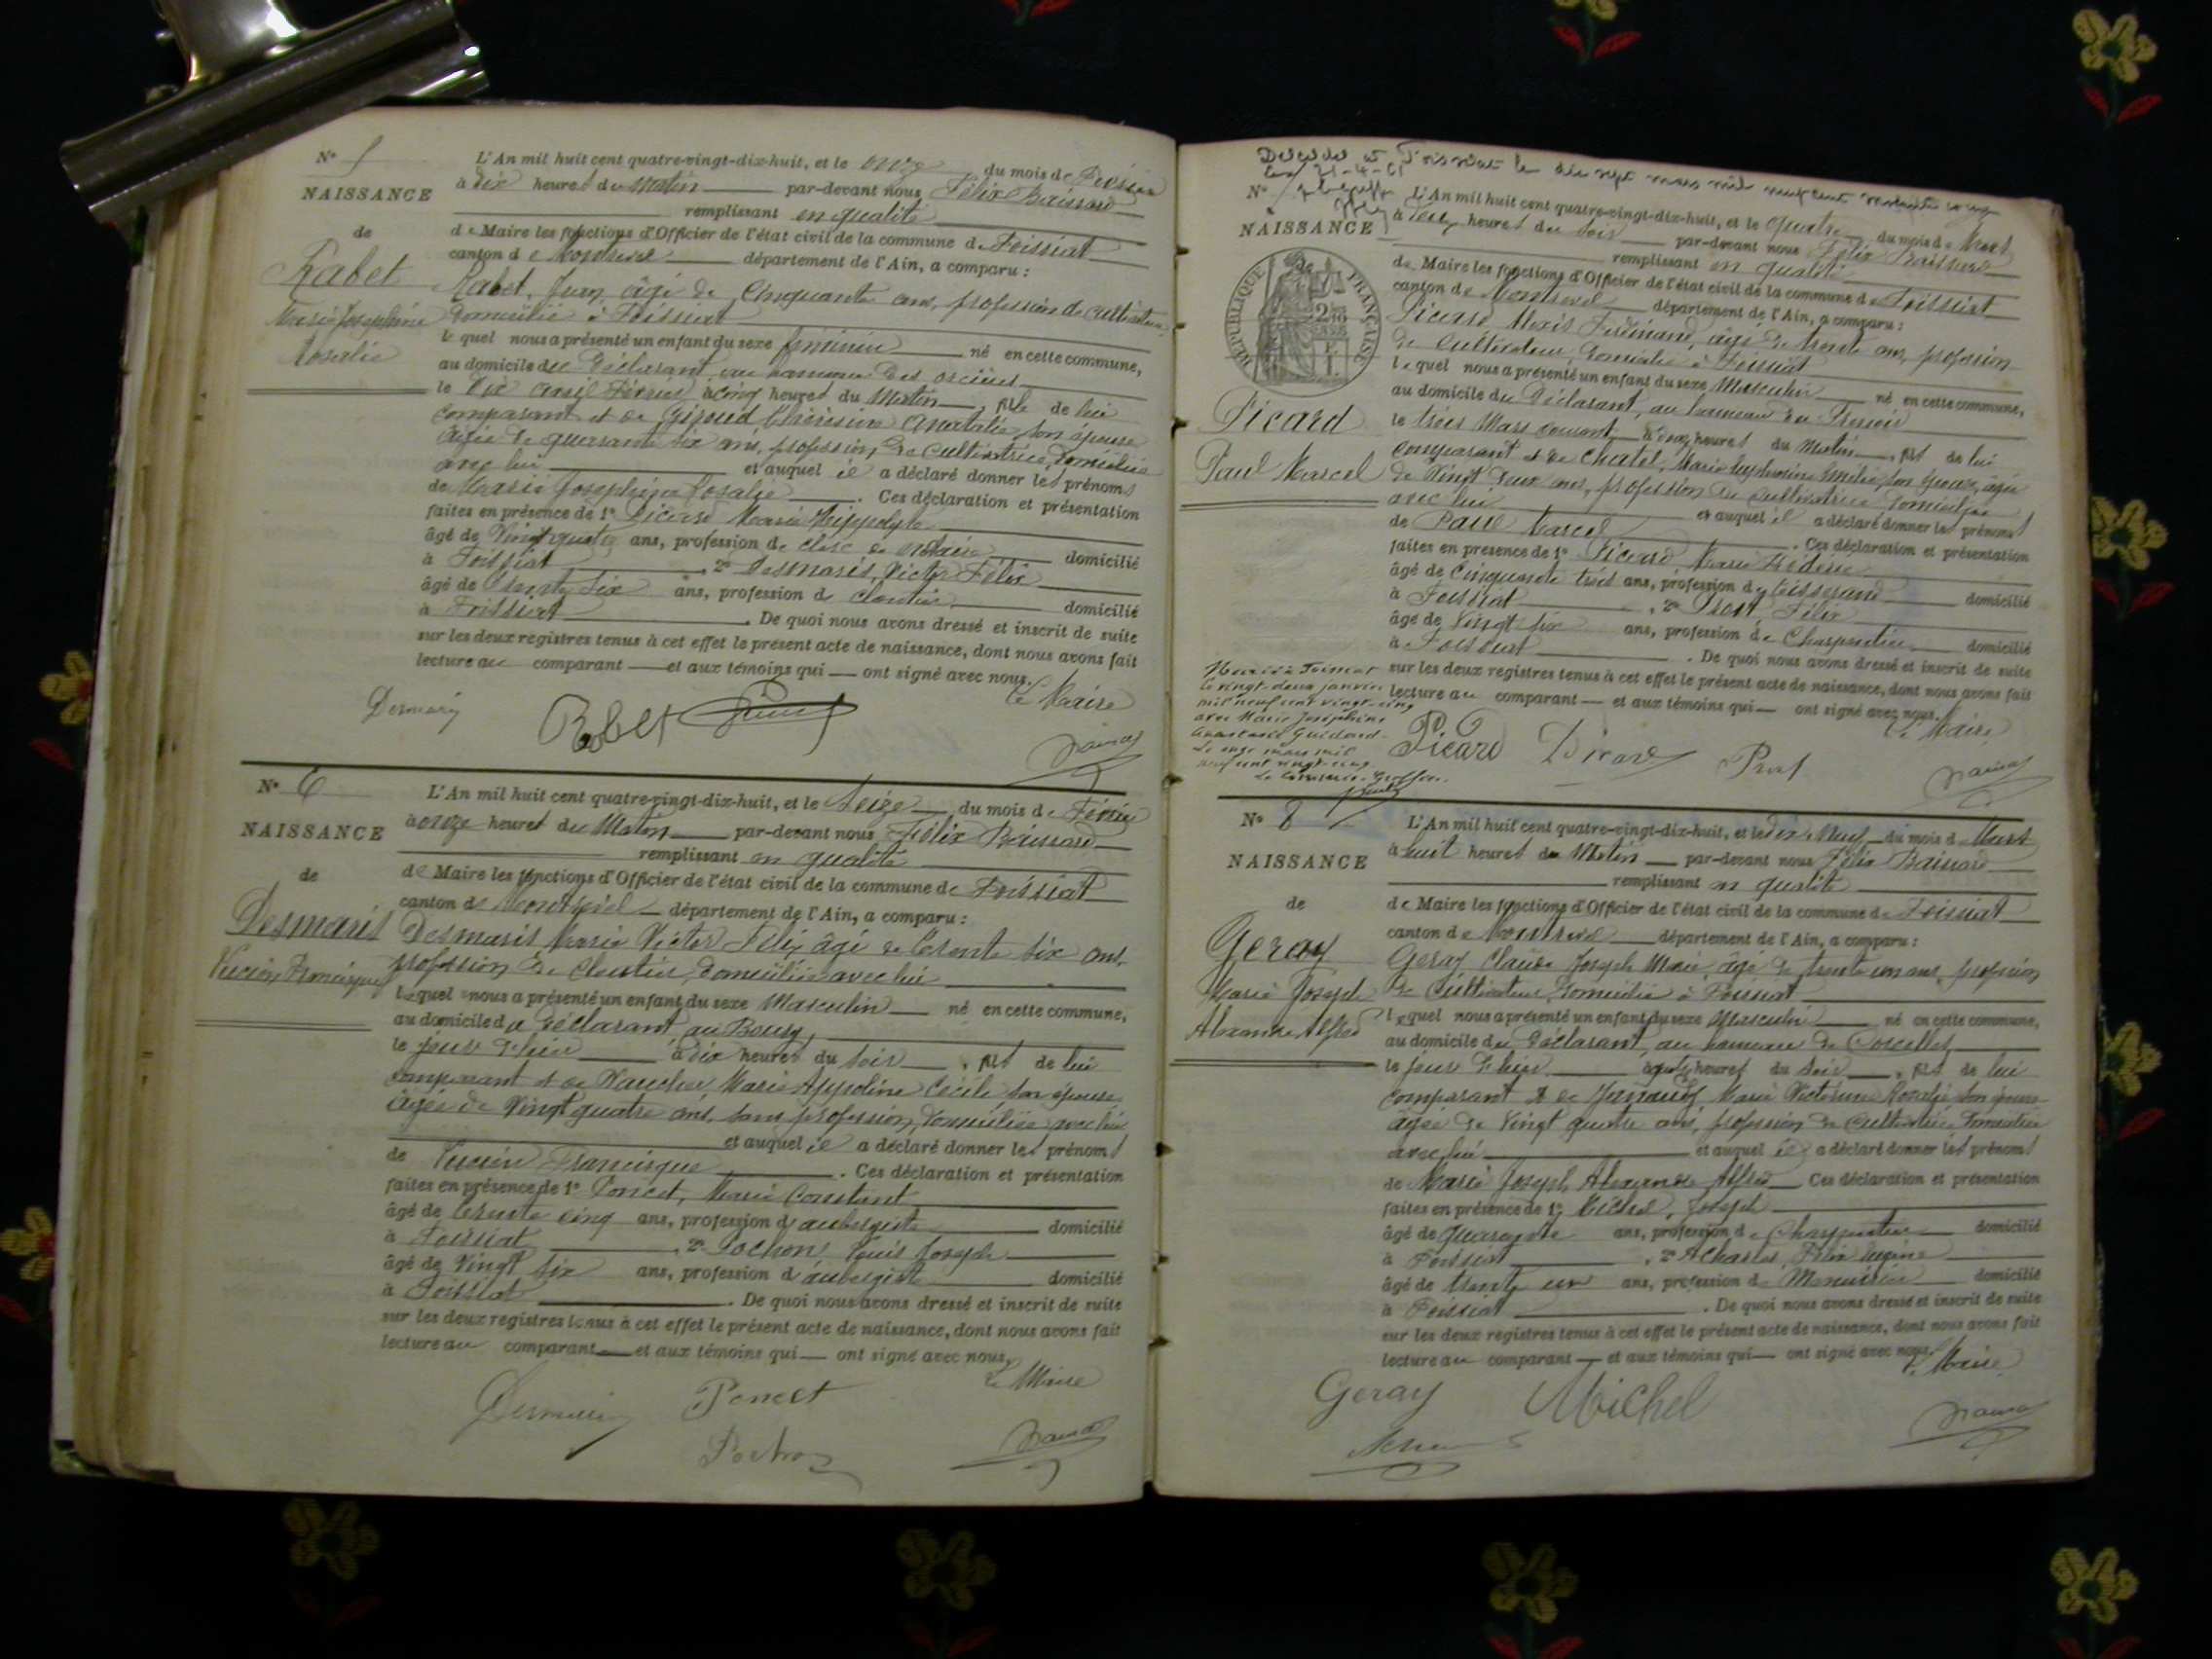 N° 5
NAISSANCE
de
Rabet
Marie Joséphine
Rosalie
L'An mil huit cent quatre-vingt-dix-huit, et le onze du mois de Février
à dix heures du Matin par-devant nous Félix
remplissant en qualité
de Maire les fonctions d'Officier de l'état civil de la commune de Foissiat
canton de Montrevel département de l'Ain, a comparu :
Rabet, Jean, âgé de Cinquante ans, profession de cultivateur
domicilié à Foissiat
le quel nous a présenté un enfant du sexe féminin né en cette commune,
au domicile du Déclarant, au hameau des
le Dix dit Février à cinq heures du Matin, fille de lui
comparant et de son épouse
âgée de quarante six ans, profession de cultivatrice, domiciliée
avec lui et auquel il a déclaré donner les prénoms
de Marie Joséphine Rosalie. Ces déclaration et présentation
faites en présence de 1° Picard Marie Hippolyte
âgé de Vingt quatre ans, profession de clerc de notaire domicilié
à Foissiat, 2° Desmaris, Victor Félix
âgé de trente six ans, profession de domicilié
à Foissiat. De quoi nous avons dressé et inscrit de suite
sur les deux registres tenus à cet effet le présent acte de naissance, dont nous avons fait
lecture au comparant et aux témoins qui ont signé avec nous.
Le Maire
Desmaris Rabet
N° 6
NAISSANCE
de
Desmaris
Francisque
L'An mil huit cent quatre-vingt-dix-huit, et le Seize du mois de Février
à onze heures du Matin par-devant nous Félix
remplissant en qualité
de Maire les fonctions d'Officier de l'état civil de la commune de Foissiat
canton de Montrevel département de l'Ain, a comparu :
Desmaris Marie Victor Félix, âgé de trente six ans,
profession de domicilié avec lui
le quel nous a présenté un enfant du sexe Masculin né en cette commune,
au domicile du Déclarant au Bourg
le jour d'hier à dix heures du soir, fils de lui
comparant et de Marie Appoline Cécile son épouse
âgée de Vingt quatre ans, sans profession, domiciliée avec lui
et auquel il a déclaré donner les prénoms
de Francisque. Ces déclaration et présentation
faites en présence de 1° Poncet, Marie Constant
âgé de trente cinq ans, profession d'aubergiste domicilié
à Foissiat, 2° Pochon Louis Joseph
âgé de Vingt six ans, profession d'aubergiste domicilié
à Foissiat. De quoi nous avons dressé et inscrit de suite
sur les deux registres tenus à cet effet le présent acte de naissance, dont nous avons fait
lecture au comparant et aux témoins qui ont signé avec nous.
Le Maire
Desmaris Poncet
Pochon
Décédé à Foissiat le dix sept mars mil neuf cent soixante cinq
N°
NAISSANCE
de
RÉPUBLIQUE FRANÇAISE
Picard
Paul Marcel
L'An mil huit cent quatre-vingt-dix-huit, et le quatre du mois de Mars
à heures du soir par-devant nous Félix
remplissant en qualité
de Maire les fonctions d'Officier de l'état civil de la commune de Foissiat
canton de Montrevel département de l'Ain, a comparu :
Picard Alexis Ferdinand, âgé de trente ans, profession
de Cultivateur, domicilié à Foissiat
le quel nous a présenté un enfant du sexe Masculin né en cette commune,
au domicile du Déclarant, au hameau du
le trois Mars courant, à onze heures du Matin, fils de lui
comparant et de Chatel, Marie Émélie son épouse, âgée
de Vingt deux ans, profession de cultivatrice domiciliée
avec lui et auquel il a déclaré donner les prénoms
de Paul Marcel. Ces déclaration et présentation
faites en présence de 1° Picard, Marie
âgé de Cinquante trois ans, profession de tisserand domicilié
à Foissiat, 2° Prost Félix
âgé de Vingt six ans, profession de Charpentier domicilié
à Foissiat. De quoi nous avons dressé et inscrit de suite
sur les deux registres tenus à cet effet le présent acte de naissance, dont nous avons fait
lecture au comparant et aux témoins qui ont signé avec nous.
Le Maire
Marié à Foissiat
le vingt-deux janvier
mil neuf cent vingt-cinq
avec Marie Joséphine
Le onze mars mil
neuf cent vingt-cinq
Picard Picard Prost
N° 8
NAISSANCE
de
Geray
Marie Joseph
Alexandre Alfred
L'An mil huit cent quatre-vingt-dix-huit, et le dix Neuf du mois de Mars
à huit heures du Matin par-devant nous Félix
remplissant en qualité
de Maire les fonctions d'Officier de l'état civil de la commune de Foissiat
canton de Montrevel département de l'Ain, a comparu :
Geray Claude Joseph Marie, âgé de trente un ans, profession
de Cultivateur, domicilié à Foissiat
le quel nous a présenté un enfant du sexe Masculin né en cette commune,
au domicile du Déclarant, au hameau de Corcelles
le jour d'hier à heures du soir, fils de lui
comparant et de Marie Victorine Rosalie son épouse
âgée de Vingt quatre ans, profession de Cultivatrice domiciliée
avec lui et auquel il a déclaré donner les prénoms
de Marie Joseph Alexandre Alfred. Ces déclaration et présentation
faites en présence de 1° Michel, Joseph
âgé de quarante ans, profession de Charpentier domicilié
à Foissiat, 2°
âgé de trente un ans, profession de Menuisier domicilié
à Foissiat. De quoi nous avons dressé et inscrit de suite
sur les deux registres tenus à cet effet le présent acte de naissance, dont nous avons fait
lecture au comparant et aux témoins qui ont signé avec nous.
Le Maire
Geray Michel